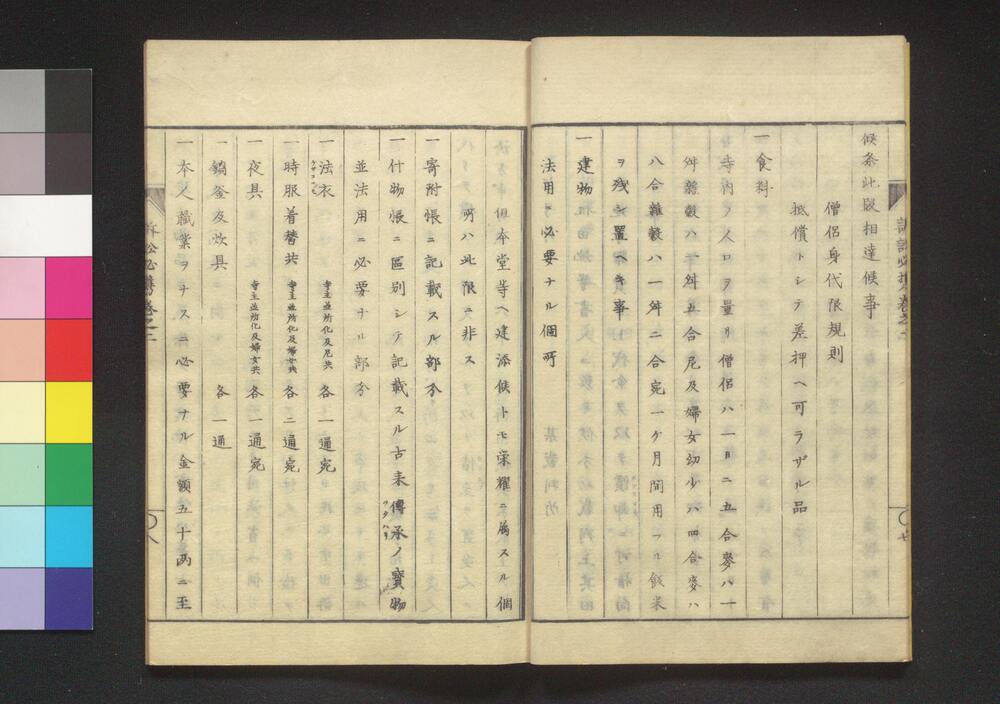 候条此段相達候事
僧侶身代限規則
抵償トシテ差押ヘ可ラザル品
一食料
寺内ノ人口ヲ量リ僧侶ハ一日ニ五合麥ハ一
舛雜穀ハ一舛五合尼及婦女幼少ハ四合麥ハ
八合雜穀ハ一舛二合宛一ケ月間用フル飯米
ヲ残シ置ヘキ事
一建物
法用ニ必要ナル個所
但本堂等ヘ建添候トモ栄耀ニ属スル個
所ハ此限ニ非ス
一寄附帳ニ記載スル部分
一什物帳ニ區别シテ記載スル古来傳承ノ寳物
並法用ニ必要ナル部分
一法衣 寺主並所化及尼共 各一通宛
一時服着替共 寺主並所化及婦女共 各二通宛
一夜具 寺主並所化及婦女共 各一通宛
一鍋釜及炊具 各一通
一本人職業ヲナスニ必要ナル金額五十両ニ至
訴訟必携巻之二